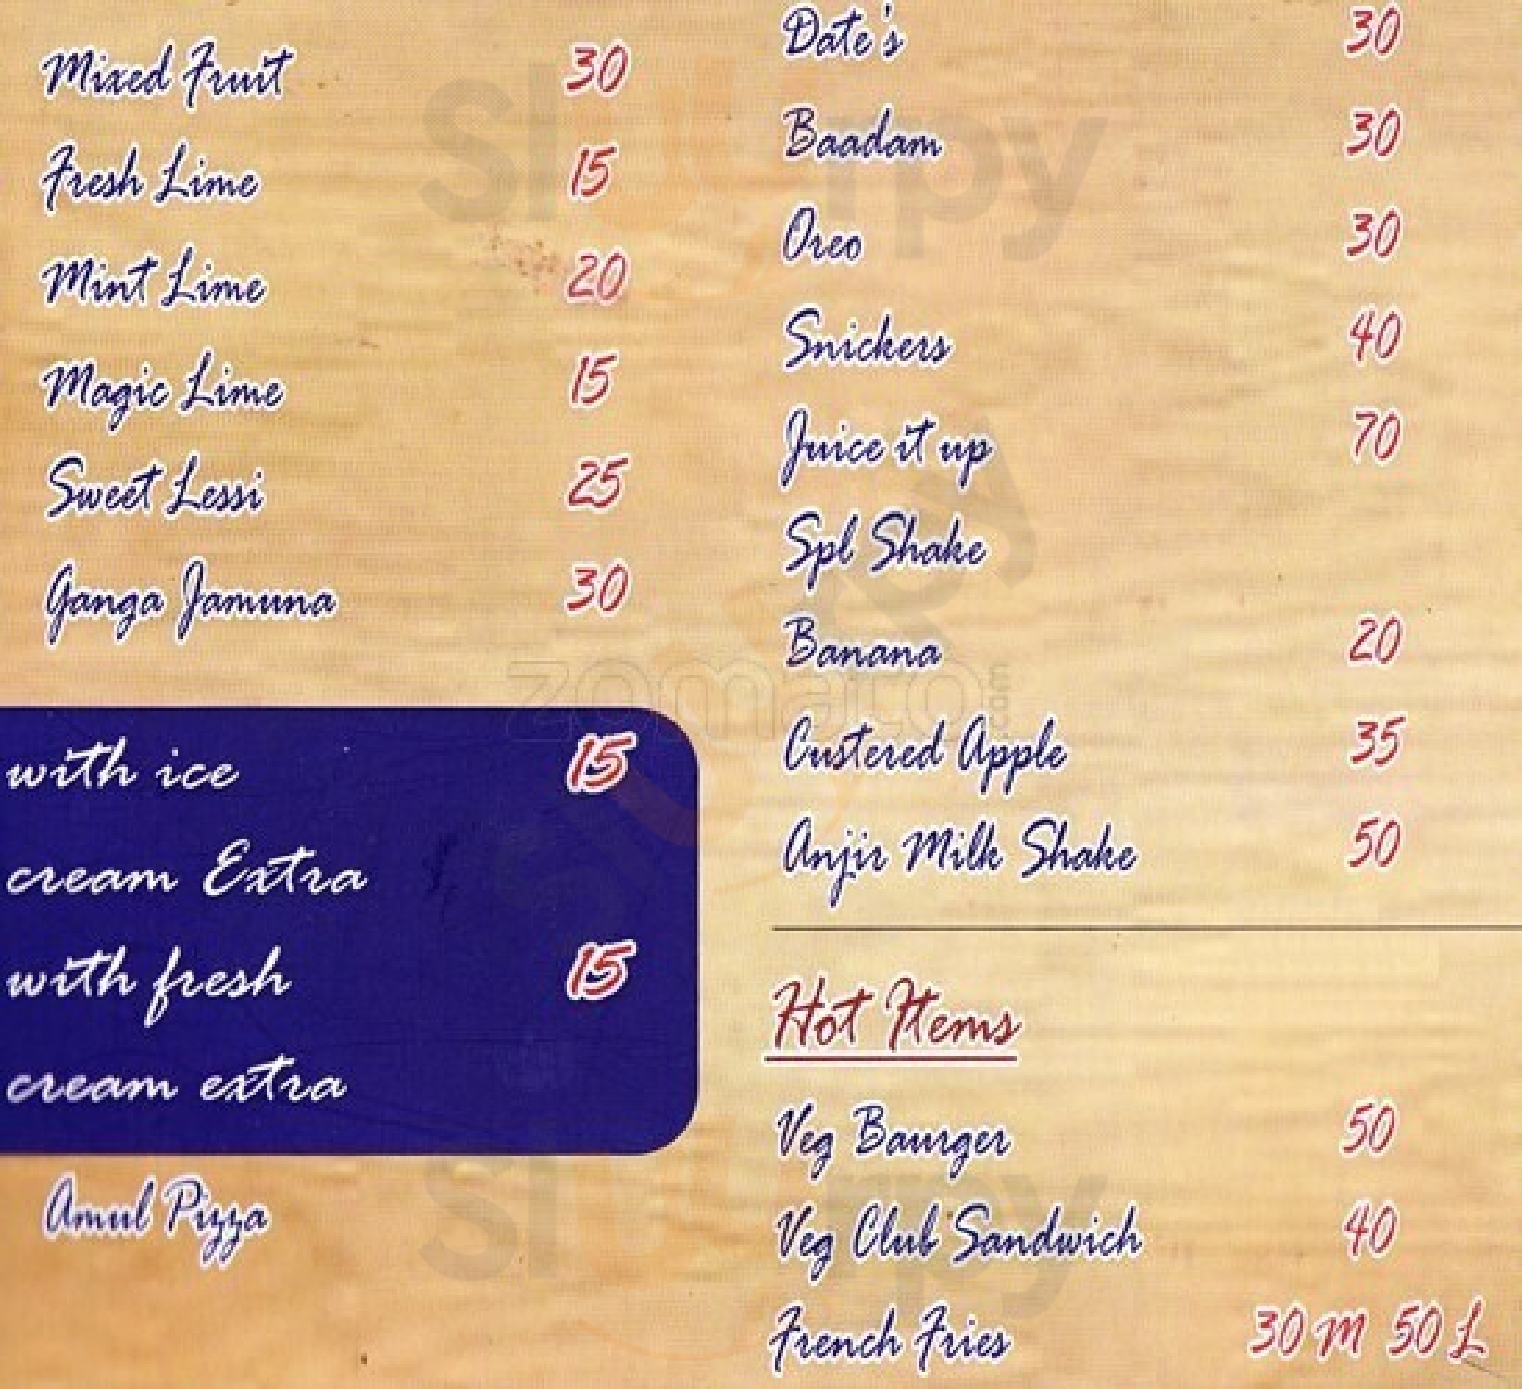 Mixed Fruit 30
Fresh Lime 15
Mint Lime 20
Magic Lime 15
Sweet Lessi 25
Ganga Jamuna 30
with ice 15
cream Extra
with fresh 15
cream extra
Amul Pizza
Date's 30
Baadam 30
Oreo 30
Snickers 40
Juice it up 70
Spl Shake
Banana 20
Custered Apple 35
Anjir Milk Shake 50
Hot Items
Veg Baurger 50
Veg Club Sandwich 40
French Fries 30 M 50 L
zomato.com